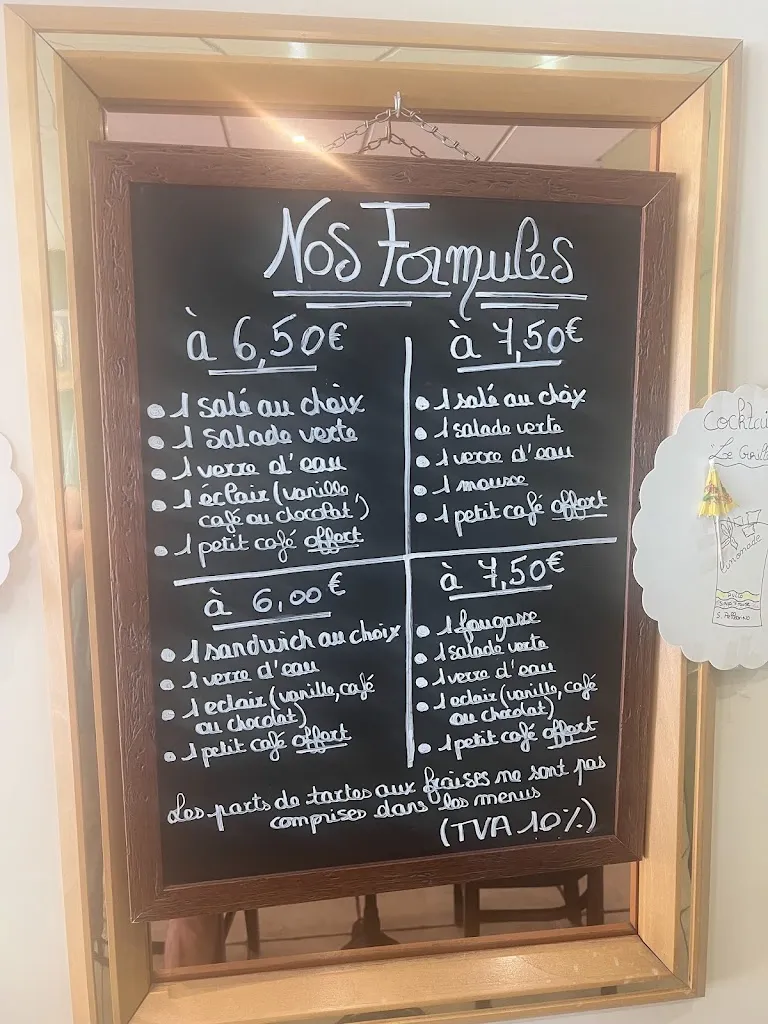 Nos Formules
à 6,50€
• 1 salé au choix
• 1 salade verte
• 1 verre d'eau
• 1 éclair (vanille,
café ou chocolat)
• 1 petit café offert
à 7,50€
• 1 salé au choix
• 1 salade verte
• 1 verre d'eau
• 1 mousse
• 1 petit café offert
à 6,00€
• 1 sandwich au choix
• 1 verre d'eau
• 1 eclair (vanille, café
ou chocolat)
• 1 petit café offert
à 7,50€
• 1 fougasse
• 1 salade verte
• 1 verre d'eau
• 1 eclair (vanille, café
ou chocolat)
• 1 petit café offert
Les parts de tartes aux fraises ne sont pas
comprises dans les menus
(TVA 10%)
Cocktai
"Le